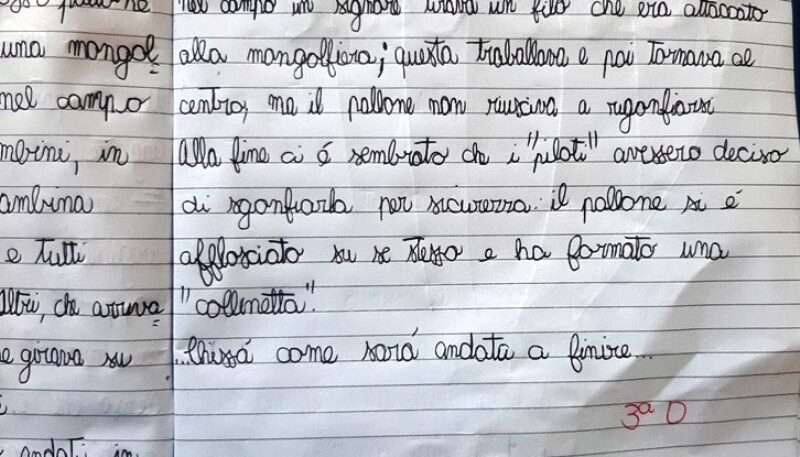 una mongol
nel campo
mbini, in
ambina
e tutti
altri, che arriva
e girava su
andati in
nel campo un signore tirava un filo che era attaccato
alla mongolfiera; questa traballava e poi tornava al
centro, ma il pallone non riusciva a rigonfiarsi
Alla fine ci é sembrato che i "piloti" avessero deciso
di sgonfiarla per sicurezza: il pallone si é
afflosciato su se stesso e ha formato una
"collinetta".
...Chissá come sará andata a finire...
3ª D